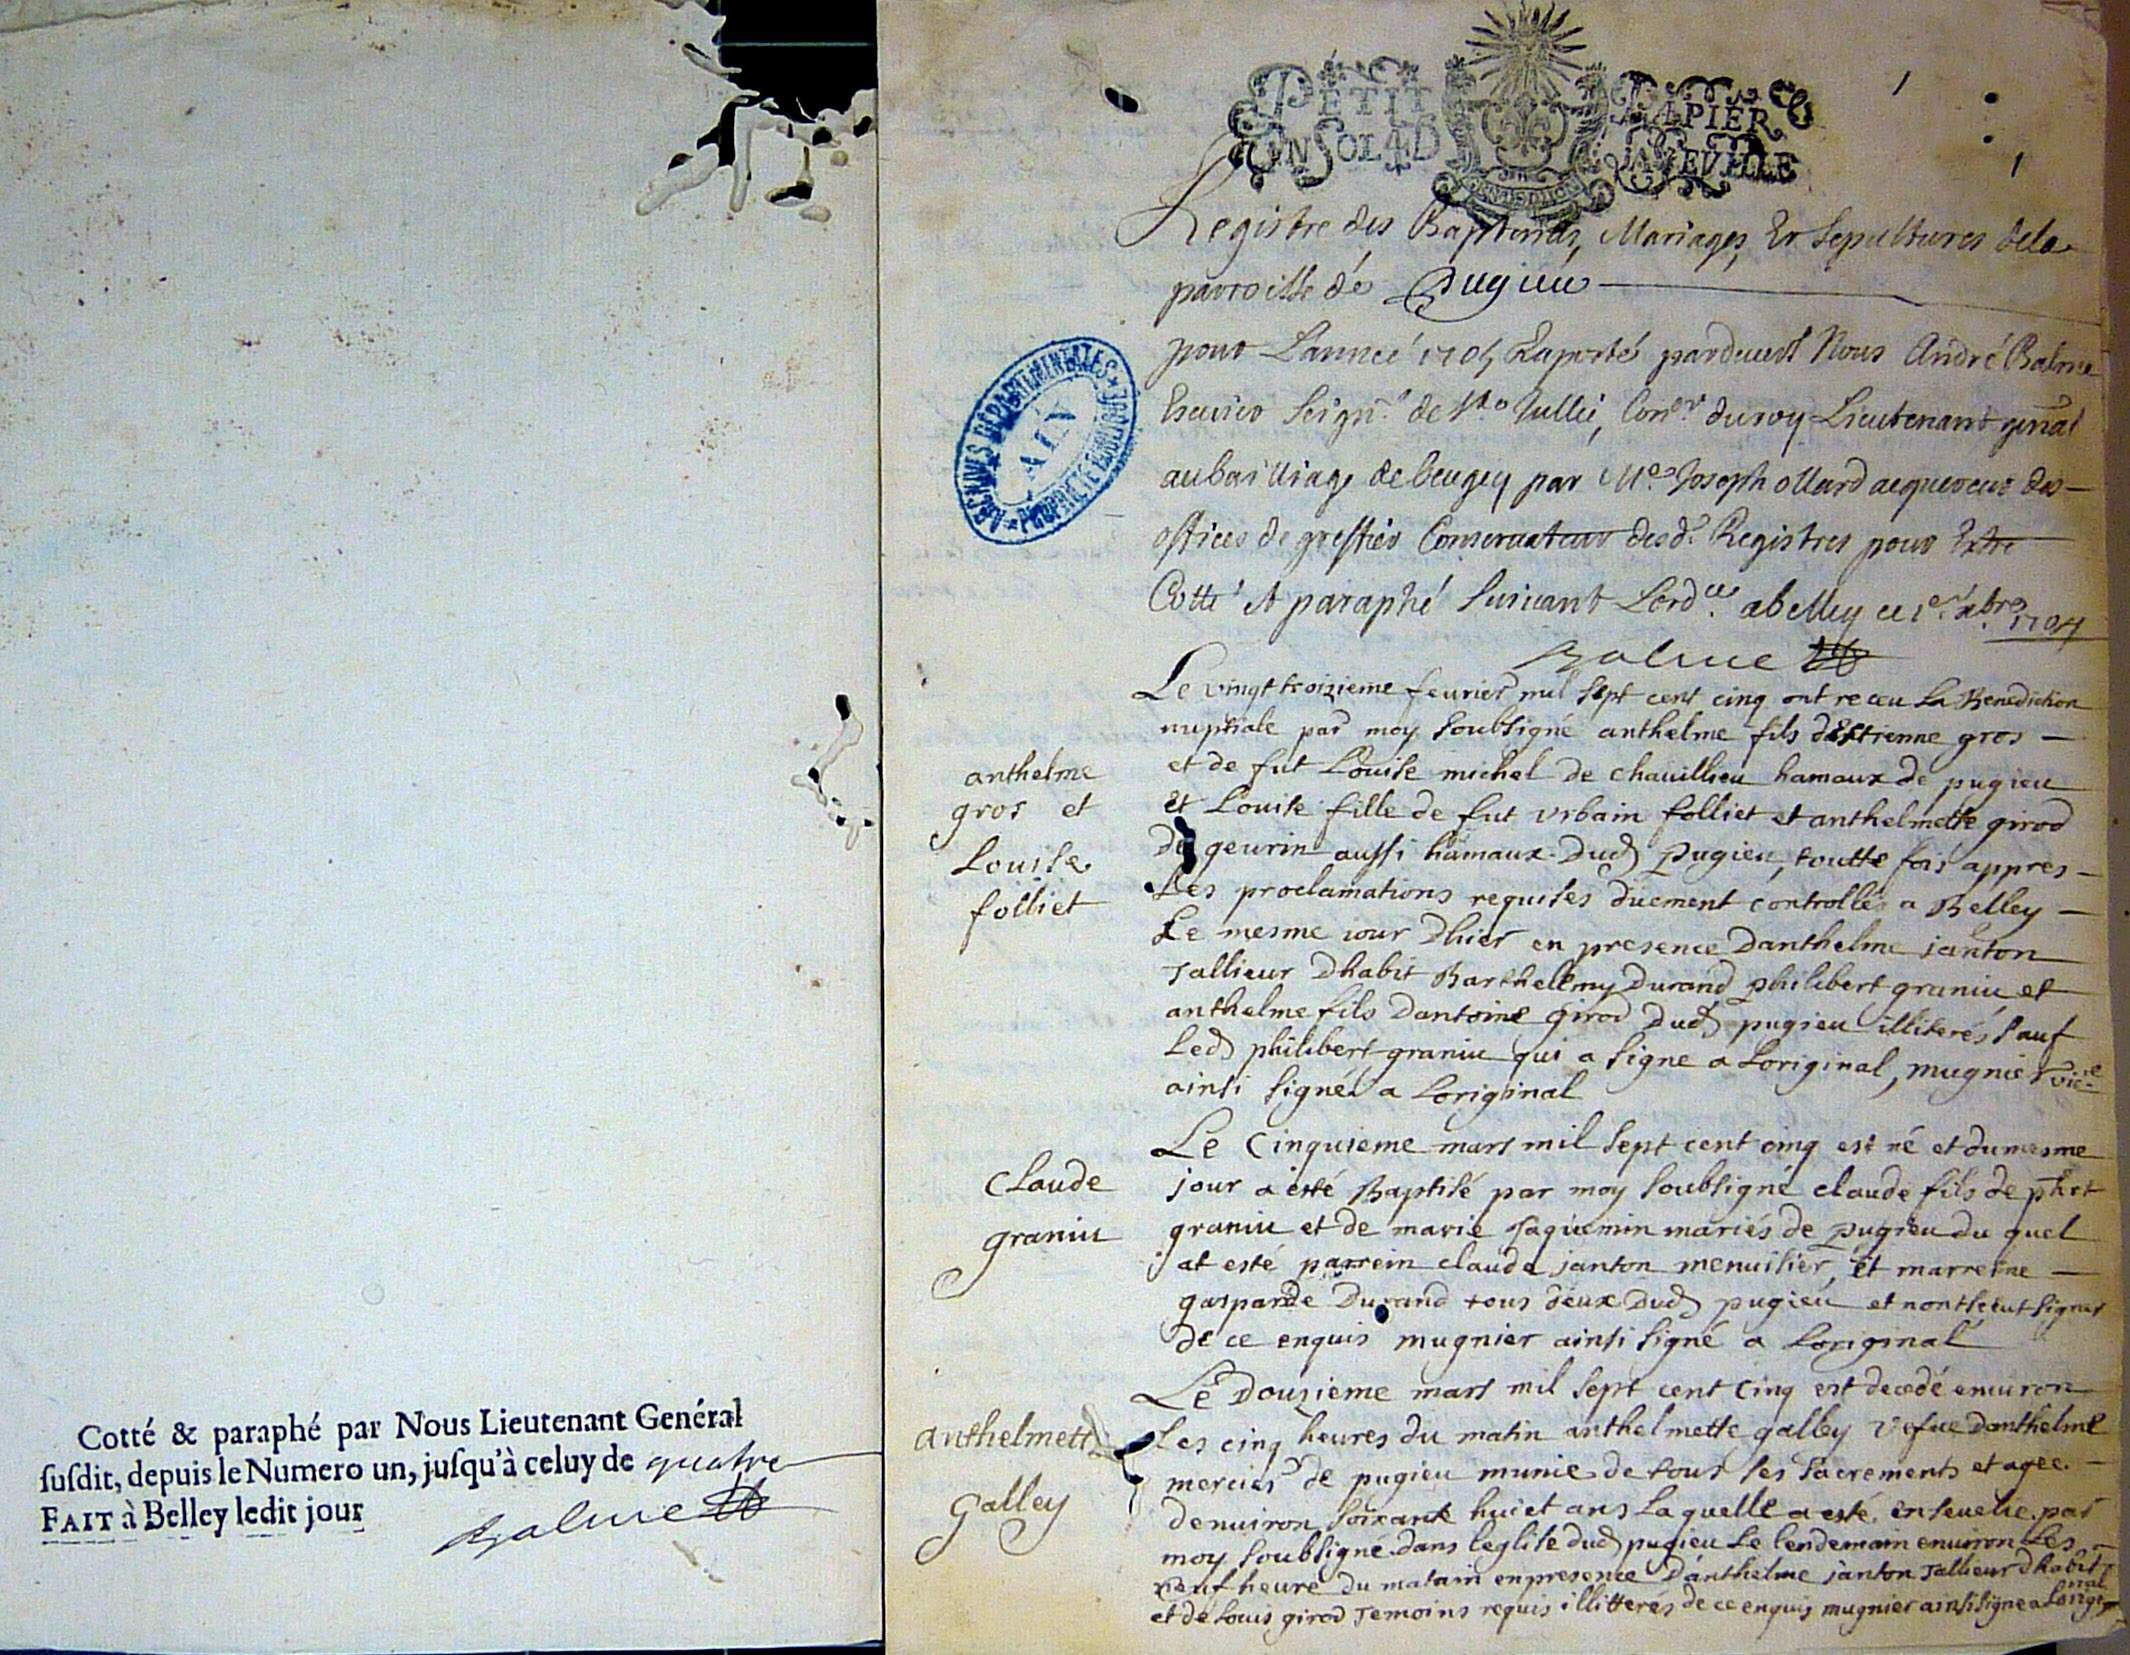 Cotté & paraphé par Nous Lieutenant Genéral
susdit, depuis le Numero un, jusqu'à celuy de quatre
FAIT à Belley ledit jour
Balme
PETIT PAPIER
UN SOL 4 D LA FEVILLE
1
1
ARCHIVES DÉPARTEMENTALES
AIN
PROPRIÉTÉ PUBLIQUE
Registre des Baptemes, Mariages, Et Sepultures dela
parroisse de Pugieu
pour L'année 1705 Raporté pardevant Nous André Balme
Escuier Seignr de Ste Jullie, Conser du roy Lieutenant genal
au bailliage de beugey par Me Joseph ollard acquereur des
offices de greffier Conservateur desd. Registres pour Estre
Cotté et paraphé Suivant Lordce a belley ce 1er xbre 1704
Balme
Le vingt troizieme fevrier mil sept cent cinq ont receu La Benediction
nuptiale par moy soubsigné anthelme fils d'Estienne gros
et de fut Louise michel de chavillieu hamaux de pugieu
et Louise fille de fut vrbain folliet et anthelmette girod
de geurin aussi hamaux dud pugieu, toutte fois appres
Les proclamations requises düement controlles a Belley
Le mesme iour Dhier en presence Danthelme janton
Tallieur Dhabit Barthellmy Durand philibert graniu et
anthelme fils Dantoine girod Dud pugieu illiterés sauf
Led philibert graniu qui a signe a Loriginal, mugnier vice
ainsi signé a Loriginal
anthelme
gros et
Louise
folliet
Le Cinquieme mars mil sept cent cinq est né et du mesme
jour a esté Baptisé par moy soubsigné claude fils de phbt
graniu et de marie Jaquemin mariés de pugieu du quel
at esté parrein claude janton menuisier, et marreine
gasparde Durand tous deux Dud pugieu et nont sceut signer
de ce enquis mugnier ainsi signé a Loriginal
Claude
graniu
Le Douzieme mars mil sept cent Cinq est decedé environ
Les cinq heures du matin anthelmette galley vefue Danthelme
mercier de pugieu munie de tous ses sacrements et agee
denuiron soixante huict ans Laquelle a esté enseuelie par
moy soubsigne dans leglise dud pugieu Le lendemain enuiron Les
neuf heure du matain en presence Danthelme janton Tallieur Dhabit
et de Louis girod Temoins requis illitterés de ce enquis mugnier ainsi signe a Loriginal
anthelmette
Galley